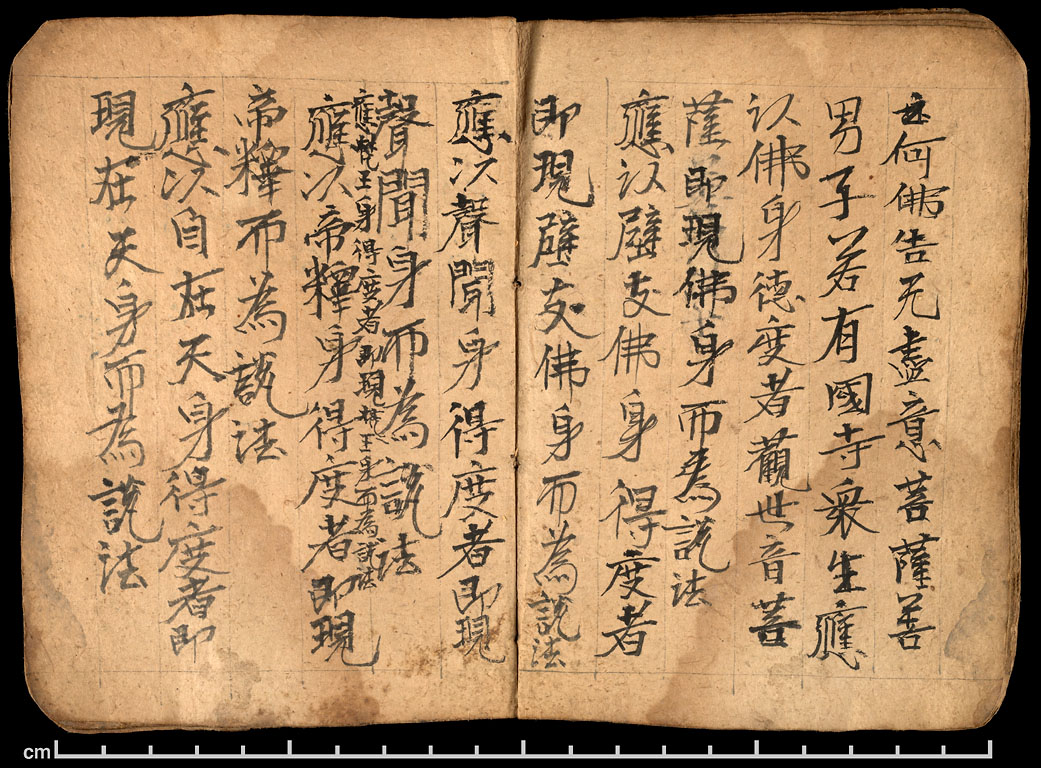 云何佛告无盡意菩薩善
男子若有國寺衆生應
以佛身德度者觀世音菩
薩即現佛身而為説法
應以壁支佛身得度者
即現壁支佛身而為説法
應以聲聞身得度者即現
聲聞身而為説法
應梵王身得度者即現梵王身而為説法
應以帝釋身得度者即現
帝釋而為説法
應以自在天身得度者即
現在天身而為説法
cm